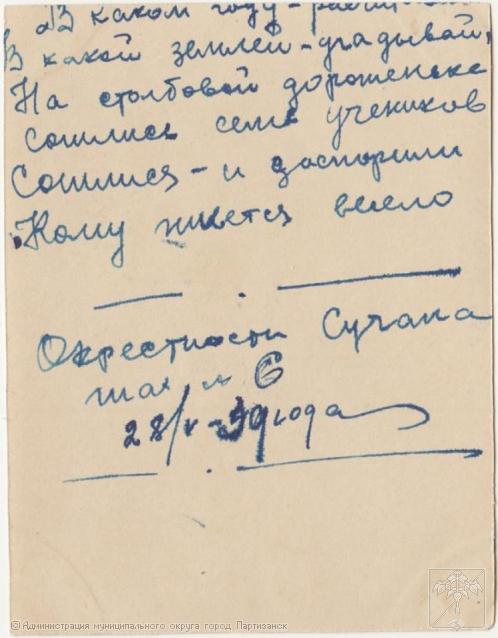 В каком году - 
В какой землей - угадывай,
На столбовой дороженьке
Сошлись семь учеников
Сошлися - и заспорили
Кому живется весело
Окрестности Сучана
шах № 6
28/V-39 года
© Администрация муниципального округа город Партизанск